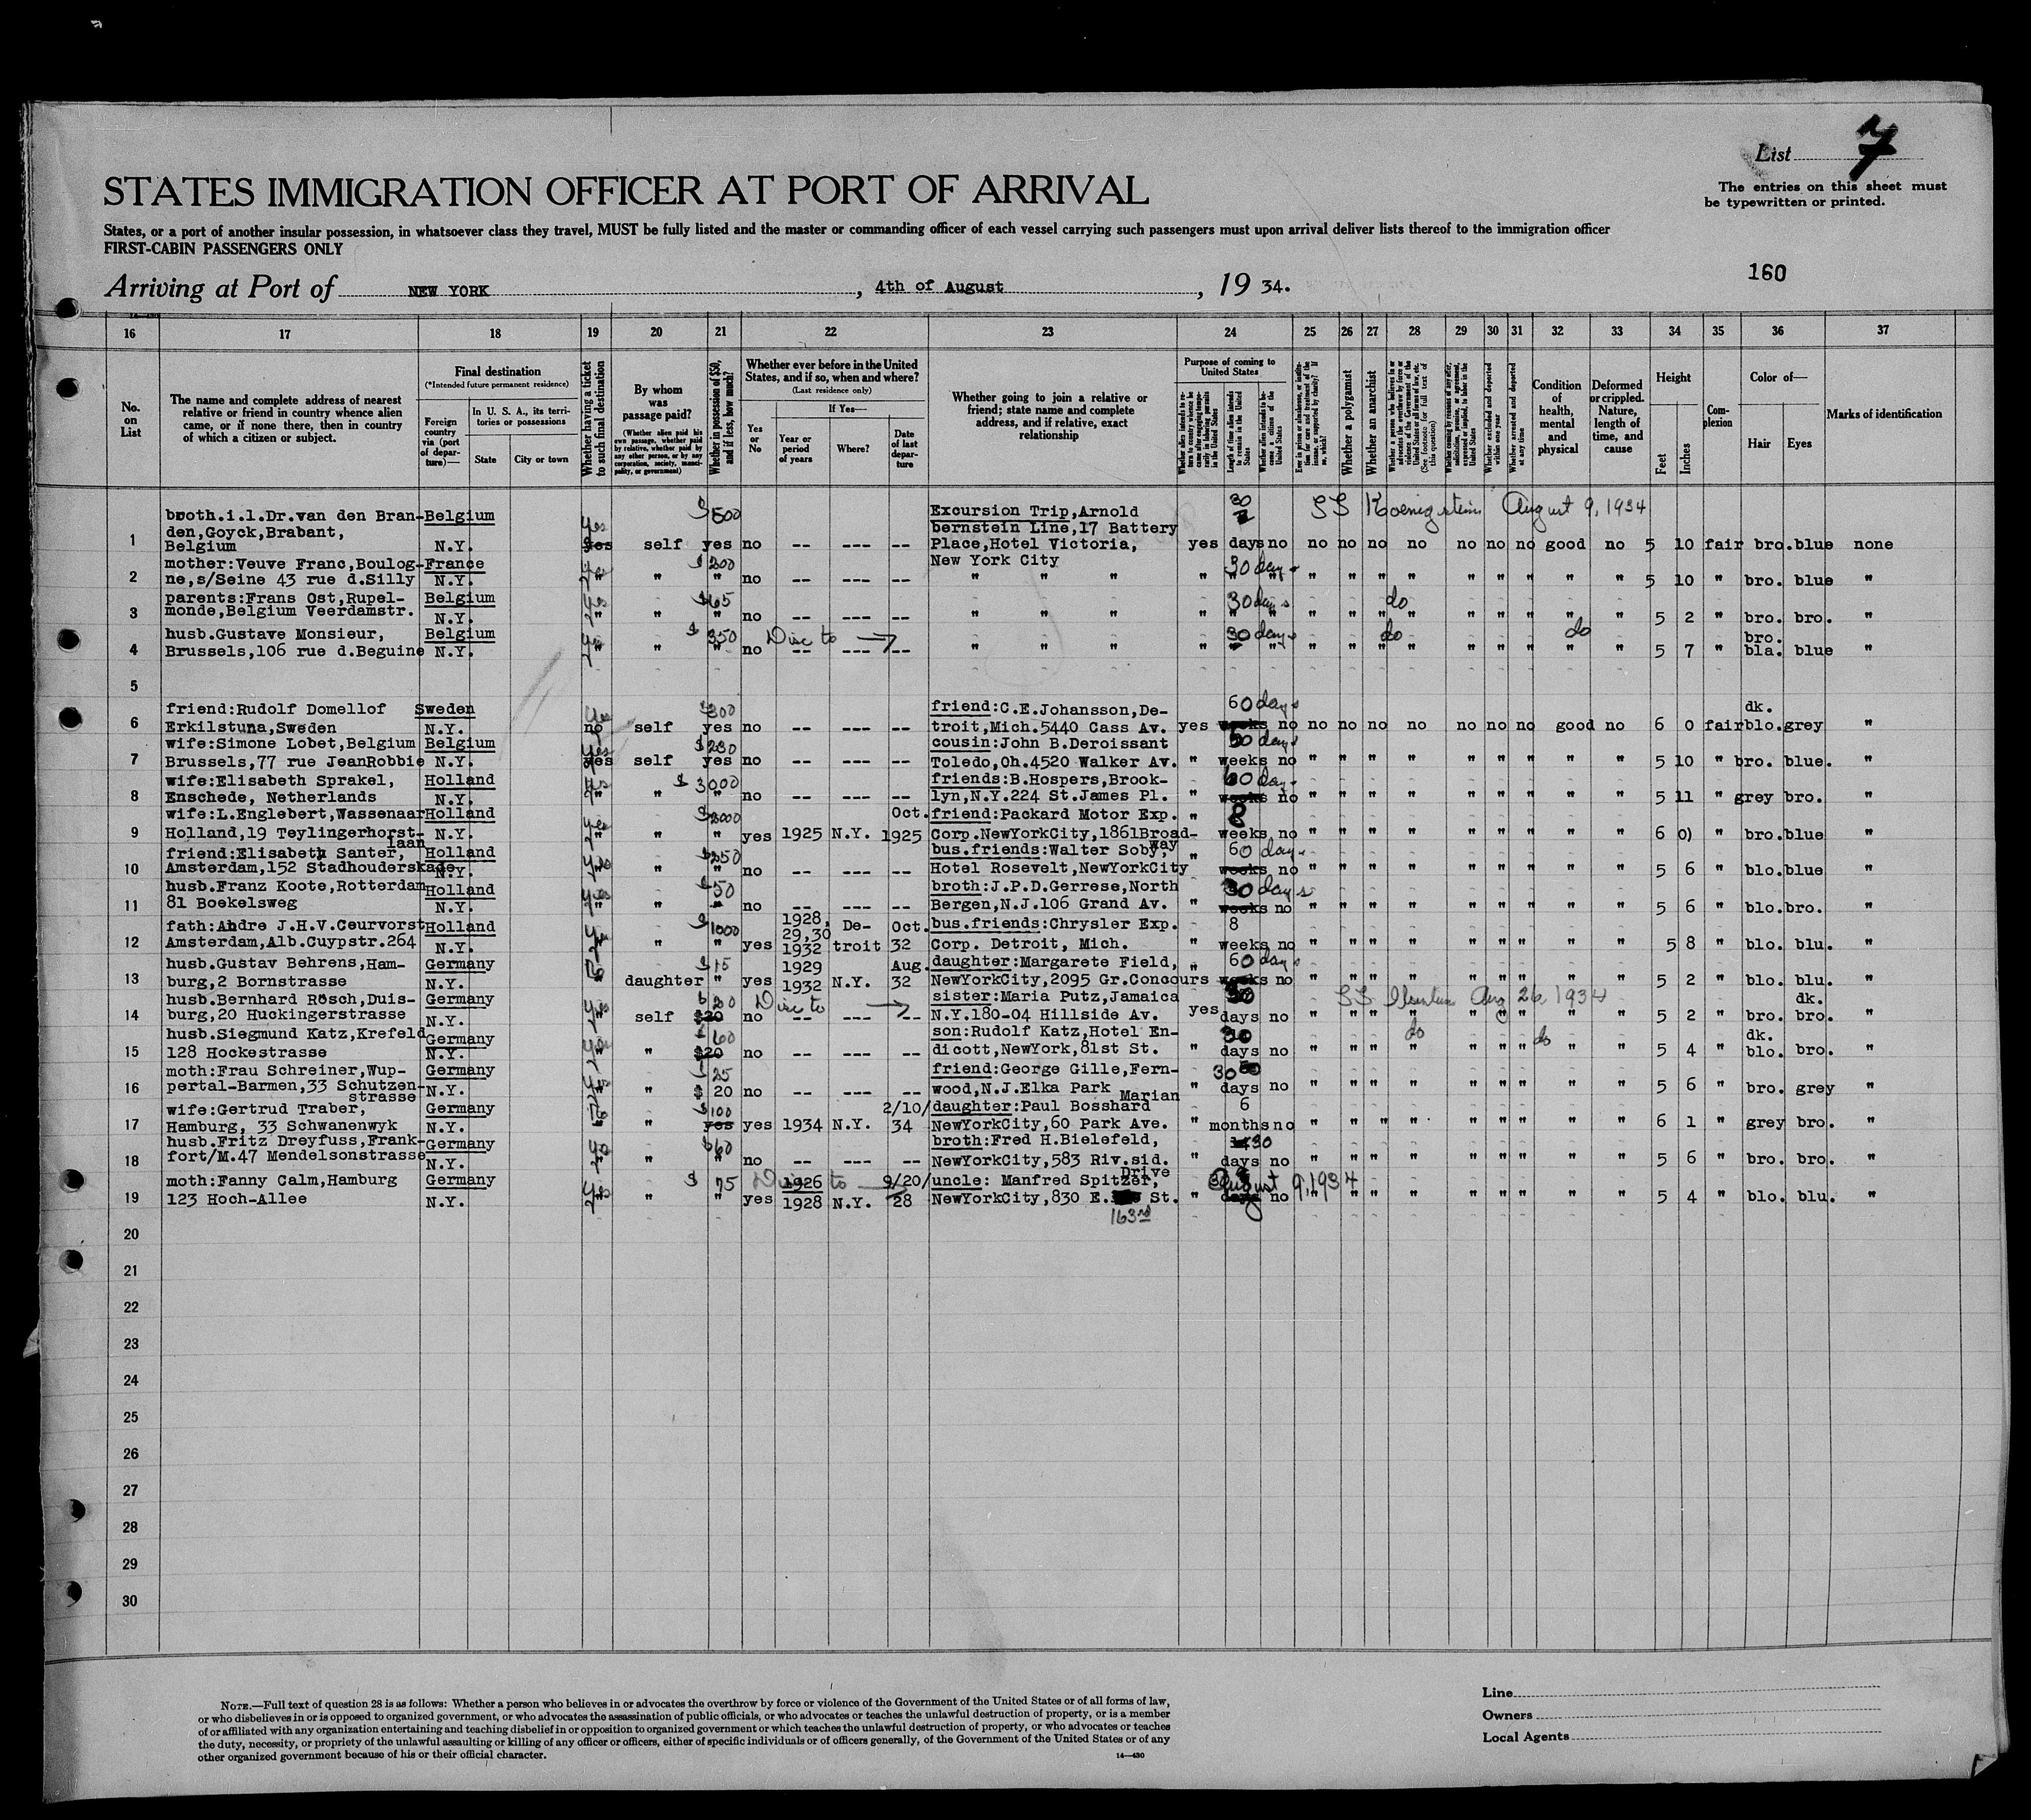 List 7
The entries on this sheet must
be typewritten or printed.
STATES IMMIGRATION OFFICER AT PORT OF ARRIVAL
States, or a port of another insular possession, in whatsoever class they travel, MUST be fully listed and the master or commanding officer of each vessel carrying such passengers must upon arrival deliver lists thereof to the immigration officer
FIRST-CABIN PASSENGERS ONLY
160
Arriving at Port of NEW YORK, 4th of August, 19 34.
16 17 18 19 20 21 22 23 24 25 26 27 28 29 30 31 32 33 34 35 36 37
No. on List
The name and complete address of nearest relative or friend in country whence alien came, or if none there, then in country of which a citizen or subject.
Final destination
(*Intended future permanent residence)
Foreign country via (port of departure)—
In U. S. A., its territories or possessions
State
City or town
Whether having a ticket to such final destination
By whom was passage paid?
(Whether alien paid his own passage, whether paid by relative, whether paid by any other person, or by any corporation, society, municipality, or government)
Whether in possession of $50, and if less, how much?
Whether ever before in the United States, and if so, when and where?
(Last residence only)
Yes or No
If Yes—
Year or period of years
Where?
Date of last departure
Whether going to join a relative or friend; state name and complete address, and if relative, exact relationship
Purpose of coming to United States
Length of time alien intends to remain in the United States
Whether alien intends to become a citizen of the United States
Whether a polygamist
Whether an anarchist
Whether excluded and deported within one year
Whether arrested and deported at any time
Condition of health, mental and physical
Deformed or crippled. Nature, length of time, and cause
Height
Feet
Inches
Complexion
Color of—
Hair
Eyes
Marks of identification
broth.i.l.Dr.van den Bran- Belgium $500 Excursion Trip,Arnold 30 SS Koenigstein August 9, 1934
den,Goyck,Brabant, yes bernstein Line,17 Battery
1 Belgium N.Y. yes self yes no -- --- -- Place,Hotel Victoria, yes days no no no no no no no no good no 5 10 fair bro. blue none
mother:Veuve Franc,Boulog- France $200 New York City 30 days
2 ne,s/Seine 43 rue d.Silly N.Y. " " " no -- --- -- " " " " " " " " " " " " " " " " 5 10 " bro. blue "
parents:Frans Ost,Rupel- Belgium $65 30 days do
3 monde,Belgium Veerdamstr. N.Y. " " " no -- --- -- " " " " " " " " " " " " " " " " 5 2 " bro. bro. "
husb.Gustave Monsieur, Belgium $350 Disc to → 30 days do do bro.
4 Brussels,106 rue d.Beguine N.Y. " " " no -- --- -- " " " " " " " " " " " " " " " " 5 7 " bla. blue "
5
friend:Rudolf Domellof Sweden $300 friend:C.E.Johansson,De- 60 days dk.
6 Erkilstuna,Sweden N.Y. no self yes no -- --- -- troit,Mich.5440 Cass Av. yes weeks no no no no no no no no good no 6 0 fair blo. grey "
wife:Simone Lobet,Belgium Belgium yes $230 cousin:John B.Deroissant days
7 Brussels,77 rue JeanRobbie N.Y. yes self yes no -- --- -- Toledo,Oh.4520 Walker Av. " weeks no " " " " " " " " " 5 10 " bro. blue. "
wife:Elisabeth Sprakel, Holland $3000 friends:B.Hospers,Brook- 60 days
8 Enschede, Netherlands N.Y. " " " no -- --- -- lyn,N.Y.224 St.James Pl. " weeks no " " " " " " " " " 5 11 " grey bro. "
wife:L.Englebert,Wassenaar Holland Oct. friend:Packard Motor Exp. " 8
9 Holland,19 Teylingerhorst- N.Y. " " " yes 1925 N.Y. 1925 Corp.NewYorkCity,1861Broad- weeks no " " " " " " " " " 6 0) " bro. blue "
laan way
friend:Elisabeth Santer, Holland $250 bus.friends:Walter Soby, " 60 days
10 Amsterdam,152 Stadhouderskade N.Y. " " " no -- --- -- Hotel Rosevelt,NewYorkCity weeks no " " " " " " " " " 5 6 " blo. blue "
husb.Franz Koote,Rotterdam Holland $50 broth:J.P.D.Gerrese,North 30 days
11 81 Boekelsweg N.Y. " " " no -- --- -- Bergen,N.J.106 Grand Av. " weeks no " " " " " " " " " 5 6 " blo. bro. "
fath:Andre J.H.V.Ceurvorst Holland $1000 1928, 29,30 De- Oct. bus.friends:Chrysler Exp. 8
12 Amsterdam,Alb.Cuypstr.264 N.Y. " " " yes 1932 troit 32 Corp. Detroit, Mich. " weeks no " " " " " " " " " 5 8 " blo. blu. "
husb.Gustav Behrens,Ham- Germany $15 1929 Aug. daughter:Margarete Field, " 60 days
13 burg,2 Bornstrasse N.Y. " daughter " yes 1932 N.Y. 32 NewYorkCity,2095 Gr.Concours weeks no " " " " " " " " " 5 2 " blo. blu. "
husb.Bernhard Rösch,Duis- Germany Disc to → sister:Maria Putz,Jamaica 30 SS Aug 26, 1934 dk.
14 burg,20 Huckingerstrasse N.Y. self $20 no -- --- -- N.Y.180-04 Hillside Av. yes days no " " " " " " " " " 5 2 " bro. bro. "
husb.Siegmund Katz,Krefeld Germany $60 son:Rudolf Katz,Hotel En- 30 do do dk.
15 128 Hockestrasse N.Y. " " $20 no -- --- -- dicott,NewYork,81st St. " days no " " " " " " " " " 5 4 " blo. bro. "
moth:Frau Schreiner,Wup- Germany 25 friend:George Gille,Fern- 30
16 pertal-Barmen,33 Schutzen- N.Y. " " $ 20 no -- --- -- wood,N.J.Elka Park " days no " " " " " " " " " 5 6 " bro. grey "
strasse Marian
wife:Gertrud Traber, Germany $100 2/10/ daughter:Paul Bosshard 6
17 Hamburg, 33 Schwanenwyk N.Y. " " yes yes 1934 N.Y. 34 NewYorkCity,60 Park Ave. " months no " " " " " " " " " 6 1 " grey bro. "
husb.Fritz Dreyfuss,Frank- Germany $60 broth:Fred H.Bielefeld, 30
18 fort/M.47 Mendelsonstrasse N.Y. " " " no -- --- -- NewYorkCity,583 Riv.sid. " days no " " " " " " " " " 5 6 " bro. bro. "
Drive
moth:Fanny Calm,Hamburg Germany $ 75 Disc to → 1926 9/20/ uncle: Manfred Spitzer, August 9, 1934
19 123 Hoch-Allee N.Y. " " " yes 1928 N.Y. 28 NewYorkCity,830 E. St. " days no " " " " " " " " " 5 4 " blo. blu. "
163rd
20
21
22
23
24
25
26
27
28
29
30
NOTE.—Full text of question 28 is as follows: Whether a person who believes in or advocates the overthrow by force or violence of the Government of the United States or of all forms of law,
or who disbelieves in or is opposed to organized government, or who advocates the assassination of public officials, or who advocates or teaches the unlawful destruction of property, or is a member
of or affiliated with any organization entertaining and teaching disbelief in or opposition to organized government or which teaches the unlawful destruction of property, or who advocates or teaches
the duty, necessity, or propriety of the unlawful assaulting or killing of any officer or officers, either of specific individuals or of officers generally, of the Government of the United States or of any
other organized government because of his or their official character.
14—430
Line
Owners
Local Agents